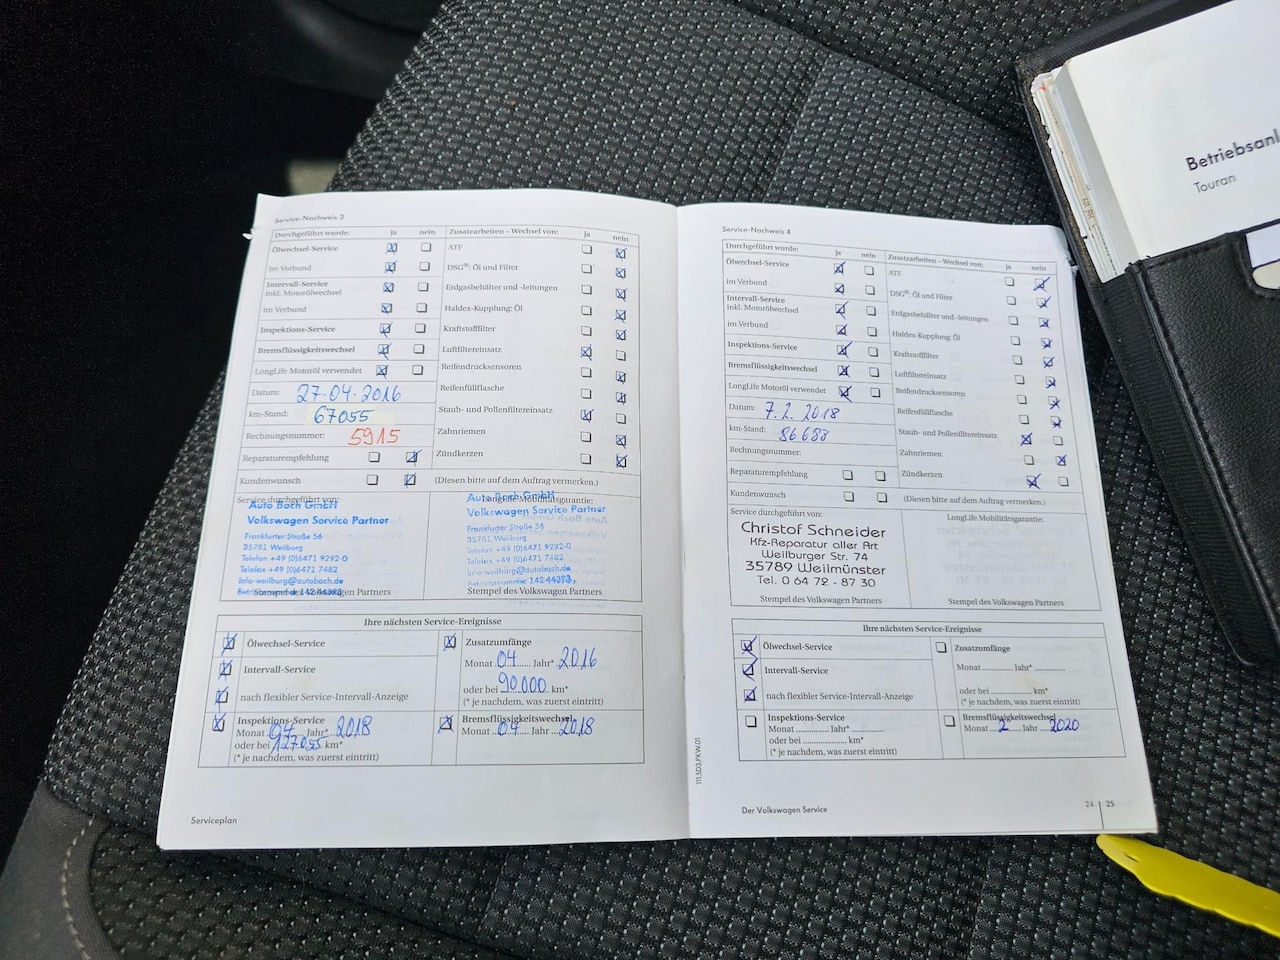 Betriebsanl
Touran
Service-Nachweis 3
Durchgeführt wurde: ja nein
Ölwechsel-Service
im Verbund
Intervall-Service
inkl. Motorölwechsel
im Verbund
Inspektions-Service
Bremsflüssigkeitswechsel
LongLife Motoröl verwendet
Datum: 27.04.2016
km-Stand: 67055
Rechnungsnummer: 5915
Reparaturempfehlung
Kundenwunsch
Zusatzarbeiten – Wechsel von: ja nein
ATF
DSG®: Öl und Filter
Erdgasbehälter und -leitungen
Haldex-Kupplung: Öl
Kraftstofffilter
Luftfiltereinsatz
Reifendrucksensoren
Reifenfüllflasche
Staub- und Pollenfiltereinsatz
Zahnriemen
Zündkerzen
(Diesen bitte auf dem Auftrag vermerken.)
Service durchgeführt von:
Auto Bach GmbH
Volkswagen Service Partner
Frankfurter Straße 56
35781 Weilburg
Telefon +49 (0)6471 9292-0
Telefax +49 (0)6471 7482
Info-weilburg@autobach.de
Stempel des Volkswagen Partners
LongLife Mobilitätsgarantie:
Auto Bach GmbH
Volkswagen Service Partner
Frankfurter Straße 56
35781 Weilburg
Telefon +49 (0)6471 9292-0
Telefax +49 (0)6471 7482
Info-weilburg@autobach.de
Betriebsnummer 142 44393
Stempel des Volkswagen Partners
Ihre nächsten Service-Ereignisse
Ölwechsel-Service
Intervall-Service
nach flexibler Service-Intervall-Anzeige
Inspektions-Service
Monat 04 Jahr* 2018
oder bei 127055 km*
(* je nachdem, was zuerst eintritt)
Zusatzumfänge
Monat 04 Jahr* 2016
oder bei 90.000 km*
(* je nachdem, was zuerst eintritt)
Bremsflüssigkeitswechsel
Monat 04 Jahr 2018
Serviceplan
Service-Nachweis 4
Durchgeführt wurde: ja nein
Ölwechsel-Service
im Verbund
Intervall-Service
inkl. Motorölwechsel
im Verbund
Inspektions-Service
Bremsflüssigkeitswechsel
LongLife Motoröl verwendet
Datum: 7.2. 2018
km-Stand: 86683
Rechnungsnummer:
Reparaturempfehlung
Kundenwunsch
Zusatzarbeiten – Wechsel von: ja nein
ATF
DSG®: Öl und Filter
Erdgasbehälter und -leitungen
Haldex-Kupplung: Öl
Kraftstofffilter
Luftfiltereinsatz
Reifendrucksensoren
Reifenfüllflasche
Staub- und Pollenfiltereinsatz
Zahnriemen
Zündkerzen
(Diesen bitte auf dem Auftrag vermerken.)
Service durchgeführt von:
Christof Schneider
Kfz-Reparatur aller Art
Weilburger Str. 74
35789 Weilmünster
Tel. 0 64 72 - 87 30
Stempel des Volkswagen Partners
LongLife Mobilitätsgarantie:
Stempel des Volkswagen Partners
Ihre nächsten Service-Ereignisse
Ölwechsel-Service
Intervall-Service
nach flexibler Service-Intervall-Anzeige
Inspektions-Service
Monat Jahr*
oder bei km*
(* je nachdem, was zuerst eintritt)
Zusatzumfänge
Monat Jahr*
oder bei km*
(* je nachdem, was zuerst eintritt)
Bremsflüssigkeitswechsel
Monat 2 Jahr 2020
111.5D3.PKW.01
Der Volkswagen Service
24 | 25